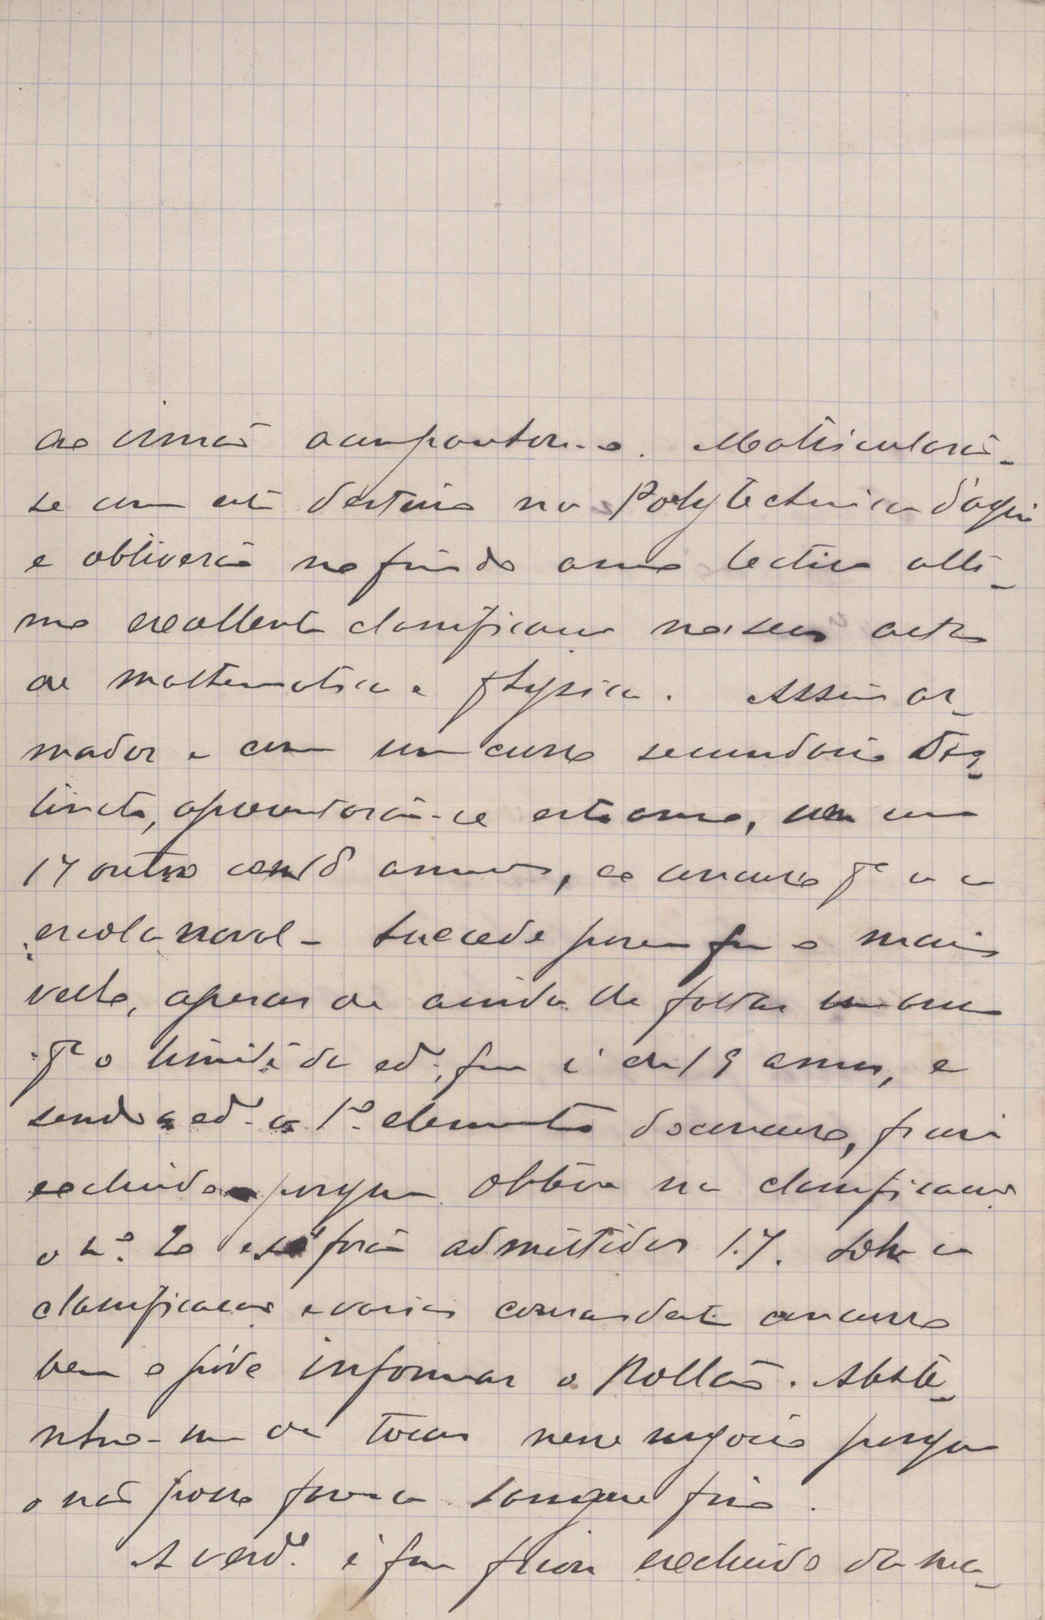 ao irmão acompanhou-o. Matricularão-
se com este destino na Polytechnica d'aqui
e obtiverão no fim do anno lectivo ulti-
mo excellente classificação nos seus actos
de mathematica e physica. Assim ar-
mados e com um curso secundario dis-
tincto, apresentarão-se este anno, um com
17 outro com 18 annos, ao concurso pª a
escola naval – Succede porem que o mais
velho, apesar de ainda lhe faltar um anno
pª o limite da edᵉ, que é de 19 annos, e
sendo a edᵉ o 1º elemento do concurso, ficou
excluido porque obteve na classificação
o nº 20 e só forão admittidos 17. Sobre a
classificação e varios deste concurso
bem o póde informar o Rollão. Abste-
nho-me de tocar nesse negocio porque
o não posso fazer a sangue frio.
A verdᵉ é que ficou excluido da ma-